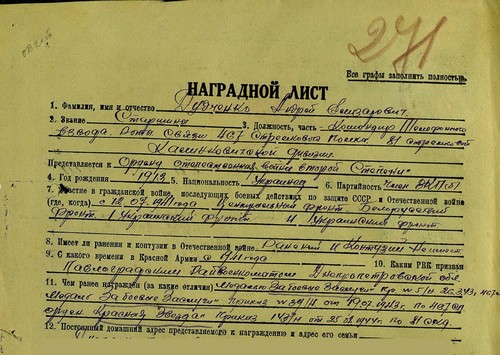 271
Все графы заполнить полностью.
НАГРАДНОЙ ЛИСТ
1. Фамилия, имя и отчество Дудченко Андрей Елизарович
2. Звание Старшина 3. Должность, часть Командир Телефонного
взвода Роты Связи 467 Стрелкового Полка 81 стрелковой
Калинковичской дивизии.
Представляется к Ордену отечественная война второй Степени
4. Год рождения 1913 5. Национальность Украинец 6. Партийность Член ВКП(б)
7. Участие в гражданской войне, последующих боевых действиях по защите СССР и Отечественной войне
(где, когда) с 12.07.41 года Центральный Фронт Белорусский
Фронт. 1 Украинский фронт. 4 Украинский фронт.
8. Имеет ли ранения и контузии в Отечественной войне Ранений и Контузий Не имеет
9. С какого времени в Красной Армии с 1941 года 10. Каким РВК призван
Павлоградским Райвоенкоматом Днепропетровской обл.
11. Чем ранее награжден (за какие отличия) Медалью "За боевые Заслуги" пр. №
Медаль За боевые Заслуги приказ № от 19.07.1943г. по 467 сп
орден Красная Звезда приказ от по 81 сд
12. Постоянный домашний адрес представляемого к награждению и адрес его семьи